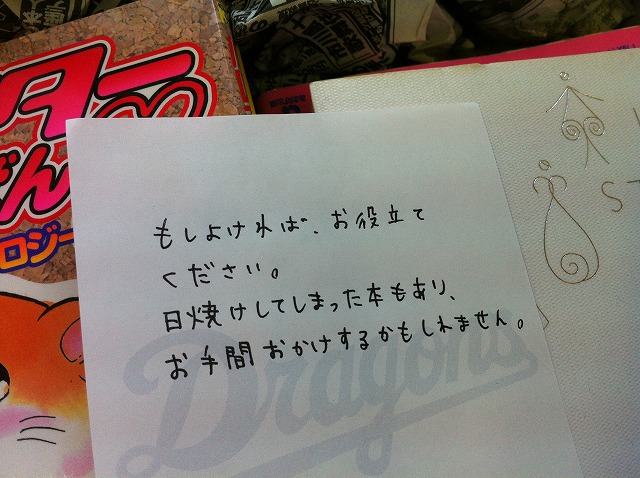 ター
ロジー
もしよければ、お役立て
ください。
日焼けしてしまった本もあり、
お手間おかけするかもしれません。
Dragons